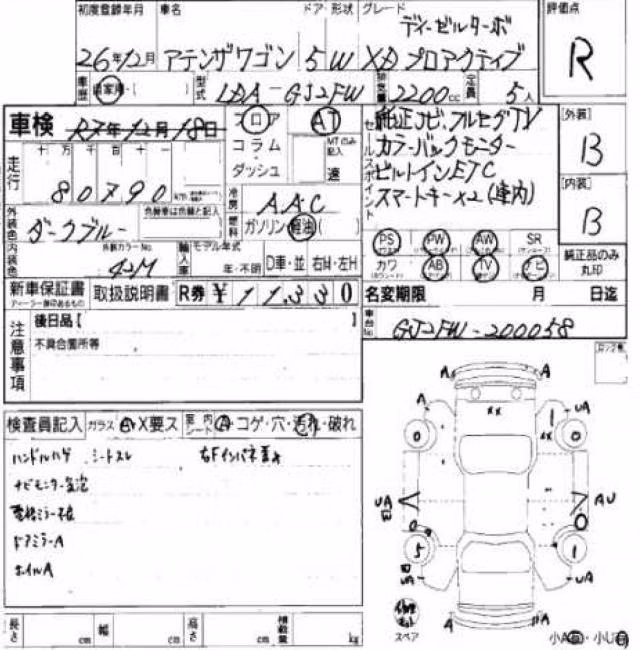 初度登録年月 車名 ドア 形状 グレード 評価点
ディーゼルターボ
26年12月 アテンザワゴン 5 W XD プロアクティブ R
車歴 自家用・( ) 型式 LDA-GJ2FW 排気量 2200cc 定員 5人
車検 R7年12月18日 フロア AT
コラム MT のみ記入
ダッシュ 速
セールスポイント
純正ナビ、フルセグTV
カラーバックモニター
ビルトインETC
スマートキー×2(車内)
[外装] B
[内装] B
走行 十 万 千 百 十 一
80790
冷房 AAC
外装色 ダークブルー 色替車は元色と記入 燃料 ガソリン 軽油 ( )
PS PW AW SR
カワ AB TV ナビ
純正品のみ丸印
内装色 外装カラーNo. 42M 輸入車 モデル年式 年・不明 D車・並 右H・左H
新車保証書 取扱説明書 R券 ¥ 11,330
名変期限 月 日迄
車台No. GJ2FW-200058
注意事項
後日品【 】
不具合箇所等
検査員記入 ガラス A・X要ス 室内シート A・コゲ・穴・汚れ・破れ
ハンドルハゲ シートスレ
ドアミラーA
ホイルA
A A
A UA
XX
0 1 XX 0
UA AU
0 0
5 1
UA UA
A A
スペア 小A 小U
長さ cm 幅 cm 高さ cm 積載量 kg